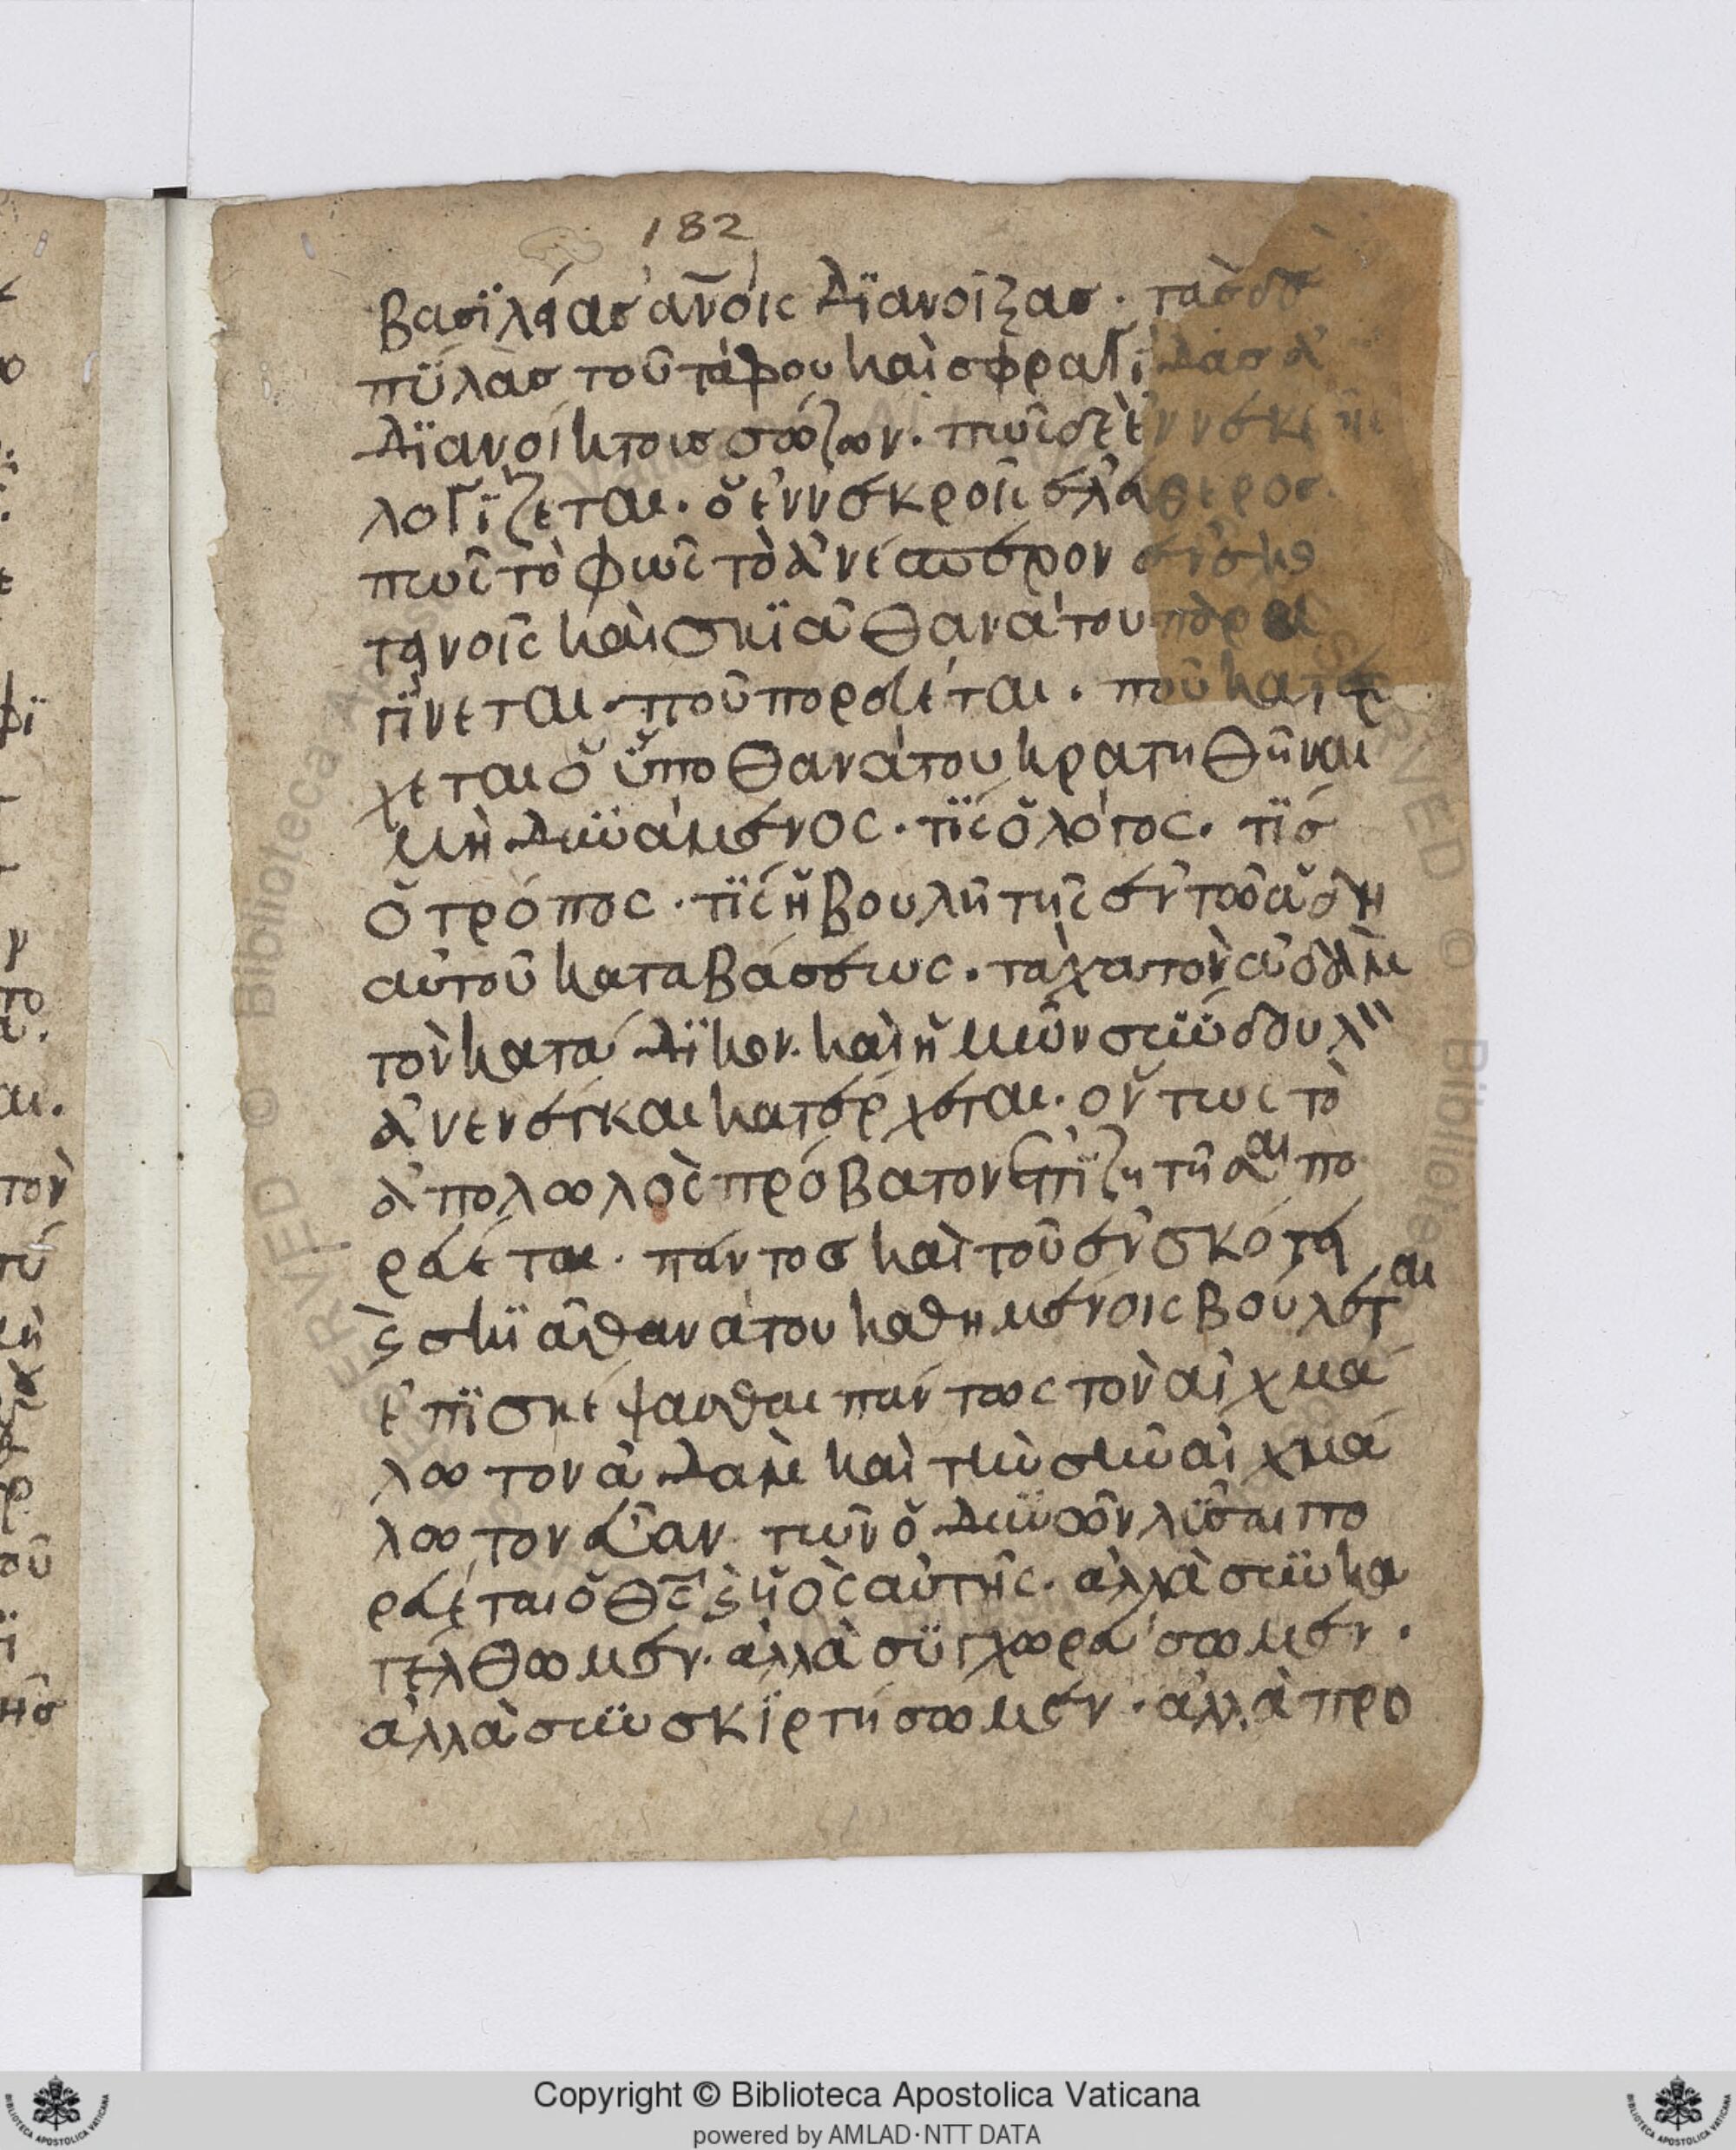 182
βασϊλείας ἀνοις δϊανοίξας · τὰσδε
πϋλὰς τοῦ τάφου καὶ σφραγίδας ἀ
δϊανοίκτοις σώζων. πῶς δὲ ἐν νεκροῖς
λογΐζεται. ὁ ἐν νεκροῖς ἐλεύθερος.
πῶς τὸ φῶς τὸ ἀνέσπερον ἐν σκο
τεινοῖς καὶ σκϊᾶ θανάτου παρα
γΐνεται. ποῦ πορεύεται. ποῦ κατέρ
χεται ὁ ϋπο θανάτου κρατηθῆναι
μὴ δυνάμενος. τΐς ὁ λόγος. τΐς
ὁ τρόπος. τΐς ἡ βουλὴ τῆς ἐν τῶ ἅδη
αὐτοῦ καταβάσεως. τάχα τὸν ἀδὰμ
τὸν κατάδϊκον. καὶ ἡμῶν σύνδουλ
ἀνενέγκαι κατέρχεται. οὕτως τὸ
ἀπολωλὸς πρόβατον ἐπϊζητῆσαι πο
ρεύεται. πάντος καὶ τοῦ ἐν σκότει
ϗ σκϊᾶ θανάτου καθημένοις βούλεται
ἐπϊσκέψασθαι πάντως τὸν αἰχμά
λωτον ἀδὰμ καὶ τὴν σὺν αἰχμά
λωτον εὔαν τῶν ὀδυνῶν λῦσαι πο
ρεύεται ὁ θς ϗ ϋὸς αὐτῆς. ἀλλὰ συνκα
τέλθωμεν. ἀλλὰ σϋγχωρεύσωμεν.
ἀλλὰ συνσκϊρτήσωμεν. ἀλλὰ προ
Copyright © Biblioteca Apostolica Vaticana
powered by AMLAD·NTT DATA